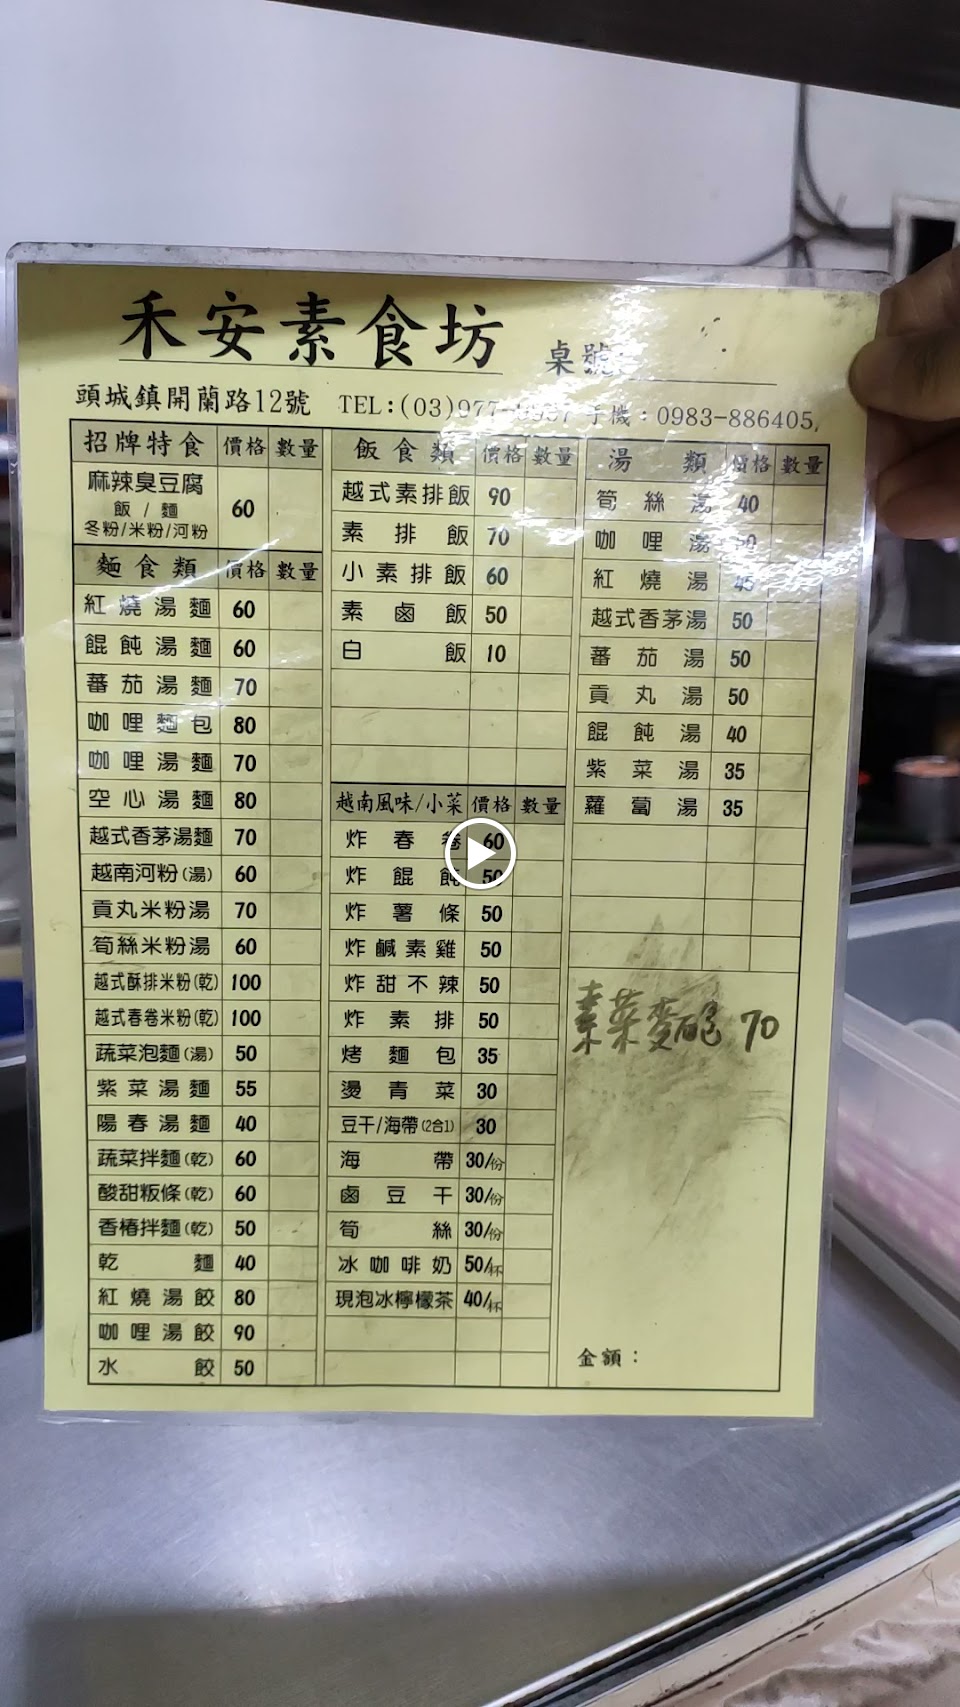 禾安素食坊
桌號:
頭城鎮開蘭路12號 TEL:(03)977- 手機:0983-886405
招牌特食 價格 數量
麻辣臭豆腐
飯/麵
冬粉/米粉/河粉
60
麵食類 價格 數量
紅燒湯麵 60
餛飩湯麵 60
蕃茄湯麵 70
咖哩麵包 80
咖哩湯麵 70
空心湯麵 80
越式香茅湯麵 70
越南河粉(湯) 60
貢丸米粉湯 70
筍絲米粉湯 60
越式酥排米粉(乾) 100
越式春卷米粉(乾) 100
蔬菜泡麵(湯) 50
紫菜湯麵 55
陽春湯麵 40
蔬菜拌麵(乾) 60
酸甜粄條(乾) 60
香椿拌麵(乾) 50
乾麵 40
紅燒湯餃 80
咖哩湯餃 90
水餃 50
飯食類 價格 數量
越式素排飯 90
素排飯 70
小素排飯 60
素鹵飯 50
白飯 10
越南風味/小菜 價格 數量
炸春卷 60
炸餛飩 50
炸薯條 50
炸鹹素雞 50
炸甜不辣 50
炸素排 50
烤麵包 35
燙青菜 30
豆干/海帶(2合1) 30
海帶 30/份
鹵豆干 30/份
筍絲 30/份
冰咖啡奶 50/杯
現泡冰檸檬茶 40/杯
湯類 價格 數量
筍絲湯 40
咖哩湯
紅燒湯 45
越式香茅湯 50
蕃茄湯 50
貢丸湯 50
餛飩湯 40
紫菜湯 35
蘿蔔湯 35
素菜麥 70
金額: